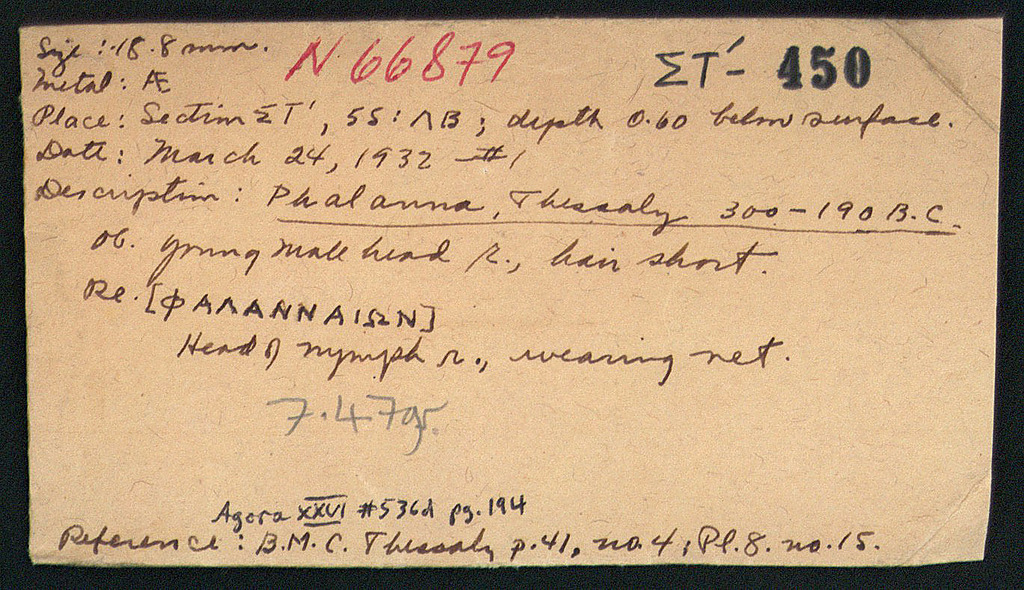 Size: 18.8 mm. N 66879 ΣΤ´- 450
Metal: Æ
Place: Section ΣΤ´, 55: ΛΒ; depth 0.60 below surface.
Date: March 24, 1932 #1
Description: Phalanna, Thessaly 300-190 B.C.
Ob. Young male head r., hair short.
Re. [ΦΑΛΑΝΝΑΙΩΝ]
Head of nymph r., wearing net.
7.47gr.
Agora XXVI #536d pg. 194
Reference: B.M.C. Thessaly p.41, no.4; Pl.8. no.15.